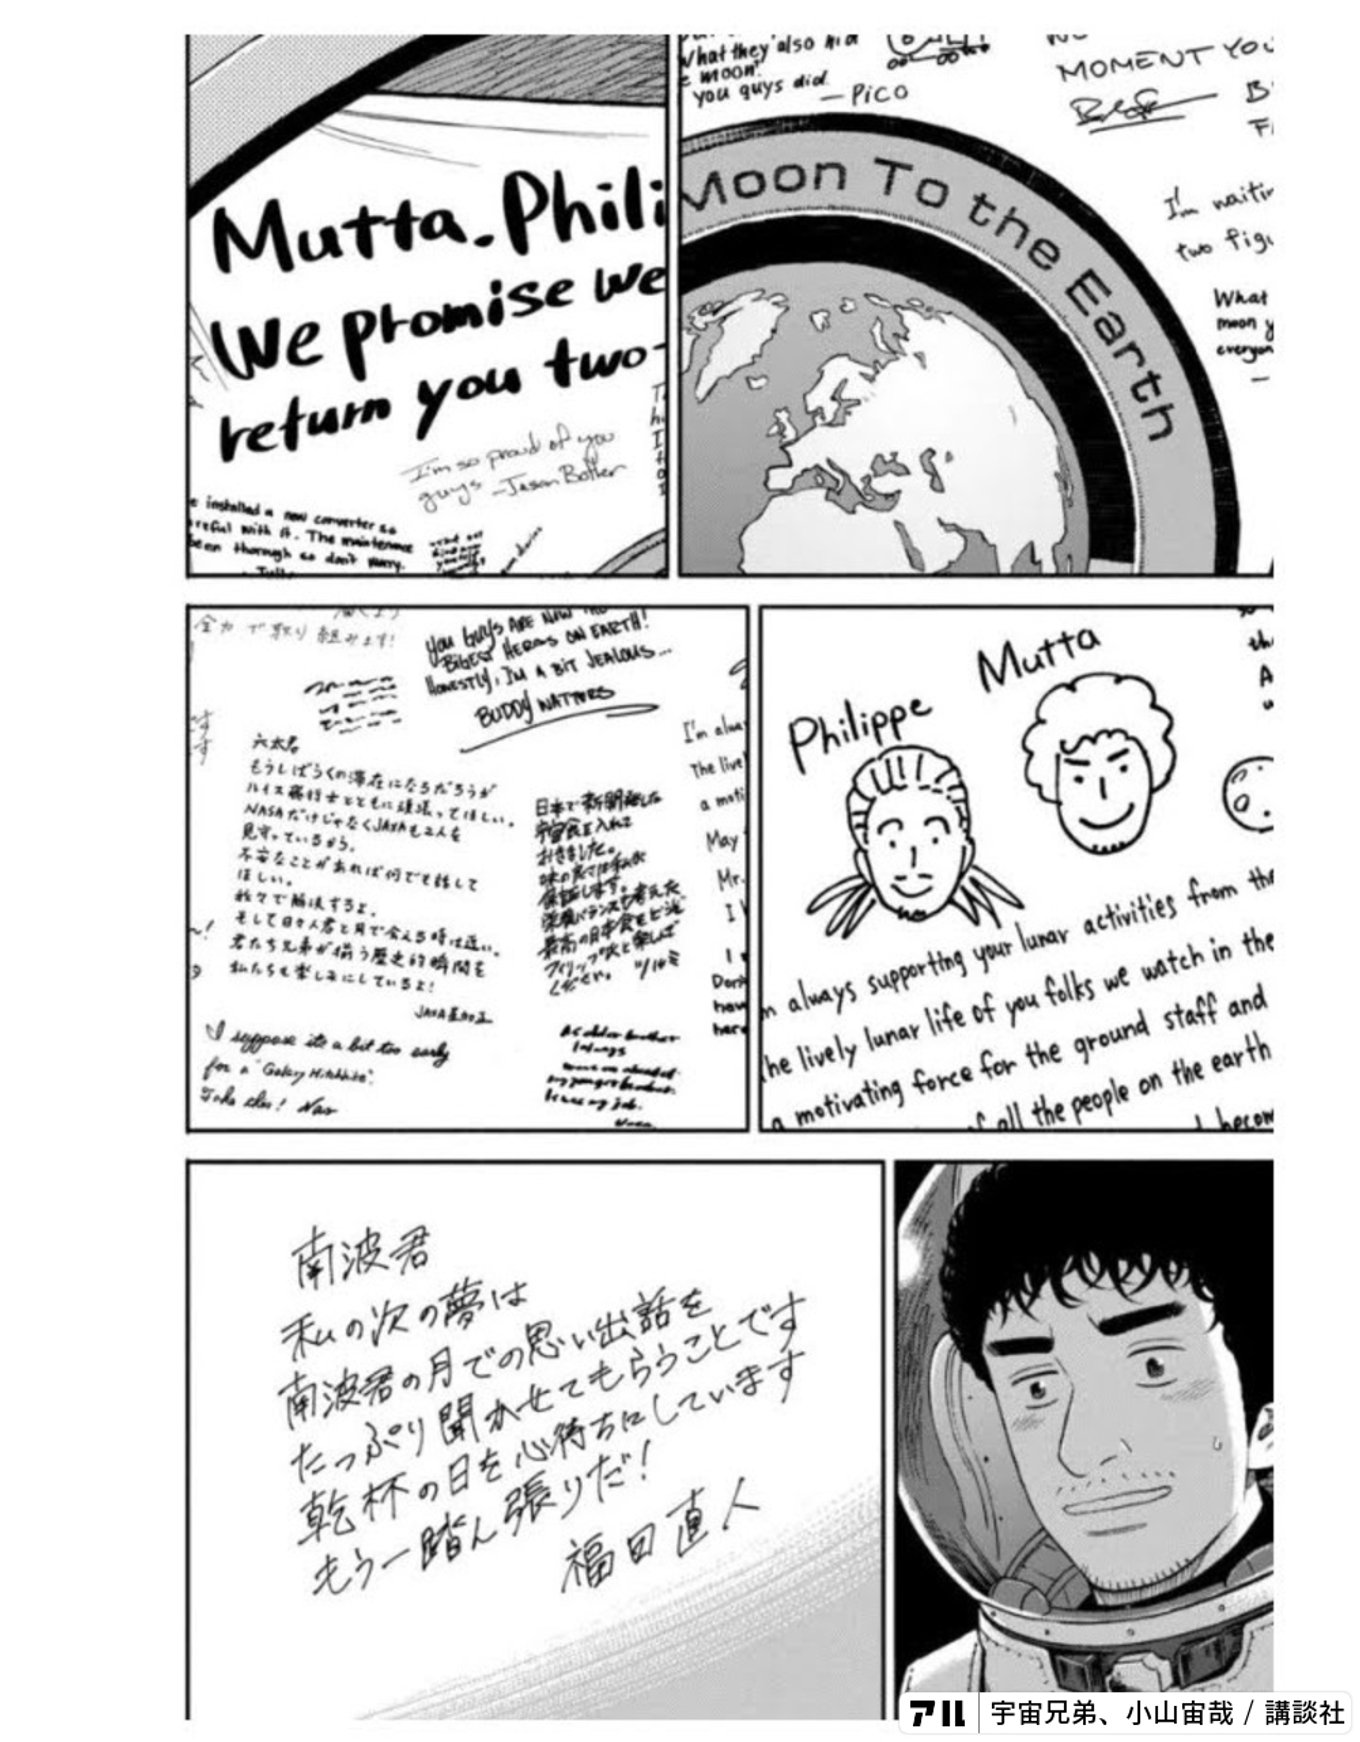 Mutta. Phili
We promise we
return you two
I'm so proud of you
guys -Jason Butler
e installed a new converter so
reful with it. The maintenance
been thorough so don't worry.
What they also
e moon.
you guys did.
—PiCO
MOMENT YOU
Moon To the Earth
I'm waitin
two figu
What
moon y
everyon
全力で取り組みます!
YOU GUYS ARE NOW THE
BIGEST HEROS ON EARTH!
HONESTLY, I'M A BIT JEALOUS...
BUDDY WATTERS
六太君
もうしばらくの滞在になるだろうが
ルイス飛行士とともに頑張ってほしい。
NASAだけじゃなくJAXAも2人を
見守っているから。
不安なことがあれば何でも話して
ほしい。
我々で解決するよ。
そして日々人君と月で会える時は近い。
君たち兄弟が揃う歴史的瞬間を
私たちも楽しみにしているよ!
JAXA星加正
日本で新開発した
宇宙食を入れて
おきました。
味の良さは私が
保証します。
栄養バランスも考えた
最高の日本食をぜひ
フィリップさんと楽しんで
ください。
I suppose its a bit too early
for a "Galaxy Hitchhike".
Take this!
As older brother
I always
my younger brother.
It was my job.
I'm alwa
The live
a moti
May
Mr.
I
Don't
have
here
Philippe
Mutta
m always supporting your lunar activities from the
he lively lunar life of you folks we watch in the
a motivating force for the ground staff and
of all the people on the earth
I becom
南波君
私の次の夢は
南波君の月での思い出話を
たっぷり聞かせてもらうことです
乾杯の日を心待ちにしています
もう一踏ん張りだ!
福田直人
アル 宇宙兄弟、小山宙哉 / 講談社